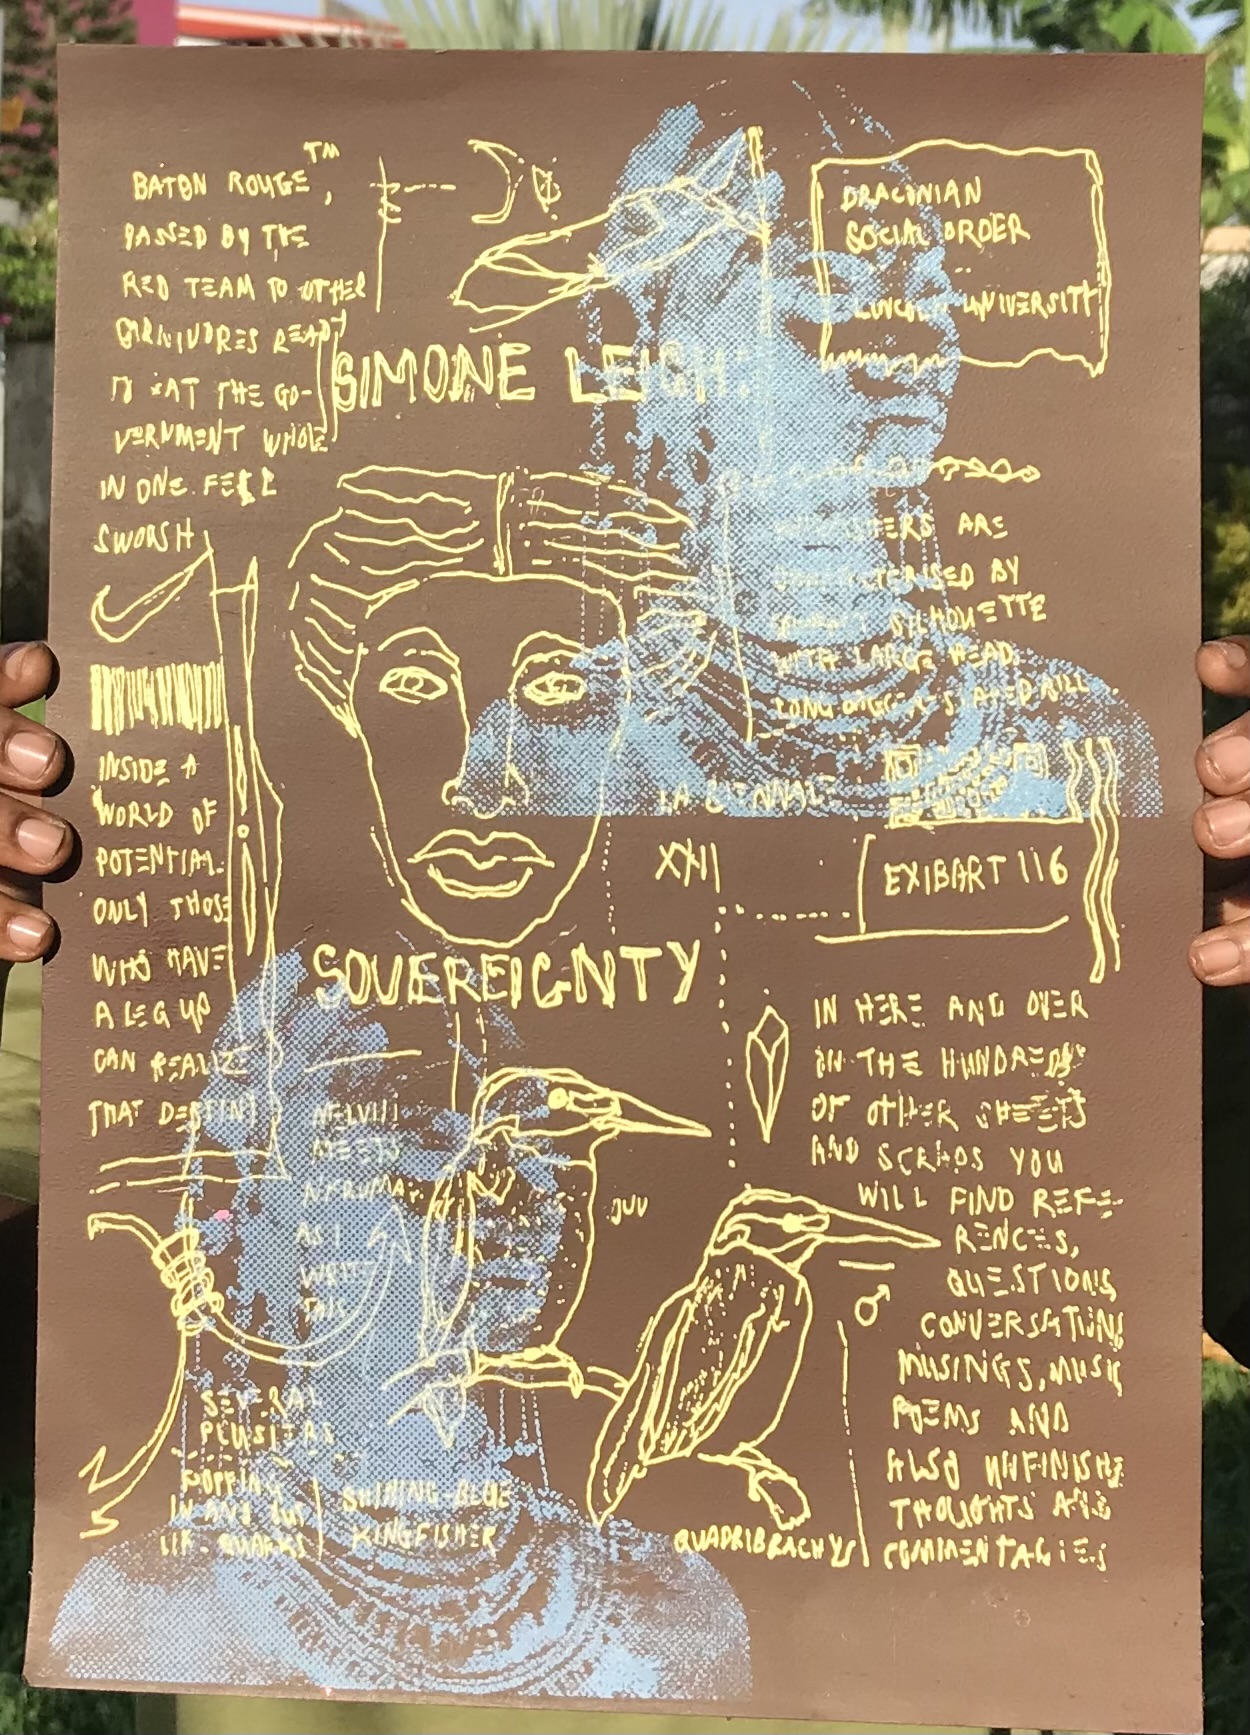 BATON ROUGE™,
PASSED BY THE
RED TEAM TO OTHER
CARNIVORES READY
TO EAT THE GO-
VERNMENT WHOLE
IN ONE FELL
SWOOSH
INSIDE A
WORLD OF
POTENTIAL.
ONLY THOSE
WHO HAVE
A LEG UP
CAN REALIZE
THAT DESTINY
DRACONIAN
SOCIAL ORDER
LINCOLN UNIVERSITY
SIMONE LEIGH:
ARE
BY
SILHOUETTE
WITH LARGE HEAD,
LONG BILL
LA BIENNALE
XXII
EXIBART 116
SOVEREIGNTY
MELVILLE
MEETS
NKRUMAH
AS I
WRITE
THIS
JUV
SEVERAL
POPPING
IN AND OUT
LIK. QUARKS
SHINING-BLUE
KINGFISHER
♂
QUADRIBRACHYS
IN HERE AND OVER
ON THE HUNDREDS
OF OTHER SHEETS
AND SCRAPS YOU
WILL FIND REFE-
RENCES,
QUESTIONS,
CONVERSATIONS
MUSINGS, MUSIC
POEMS AND
ALSO UNFINISHE
THOUGHTS AND
COMMENTARIES